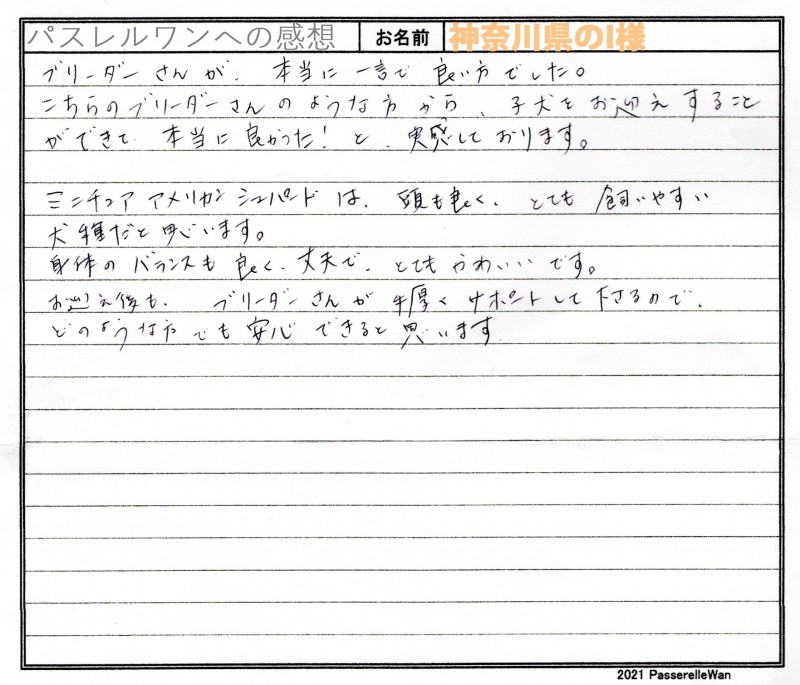 パスレルワンへの感想 お名前 神奈川県のI様
ブリーダーさんが、本当に一言で良い方でした。
こちらのブリーダーさんのような方から、子犬をお迎えすること
ができて、本当に良かった！と、実感しております。
ミニチュアアメリカンシェパードは、頭も良く、とても飼いやすい
犬種だと思います。
身体のバランスも良く、丈夫で、とてもかわいいです。
お迎え後も、ブリーダーさんが手厚くサポートして下さるので、
どのような方でも安心できると思います
2021 PasserelleWan